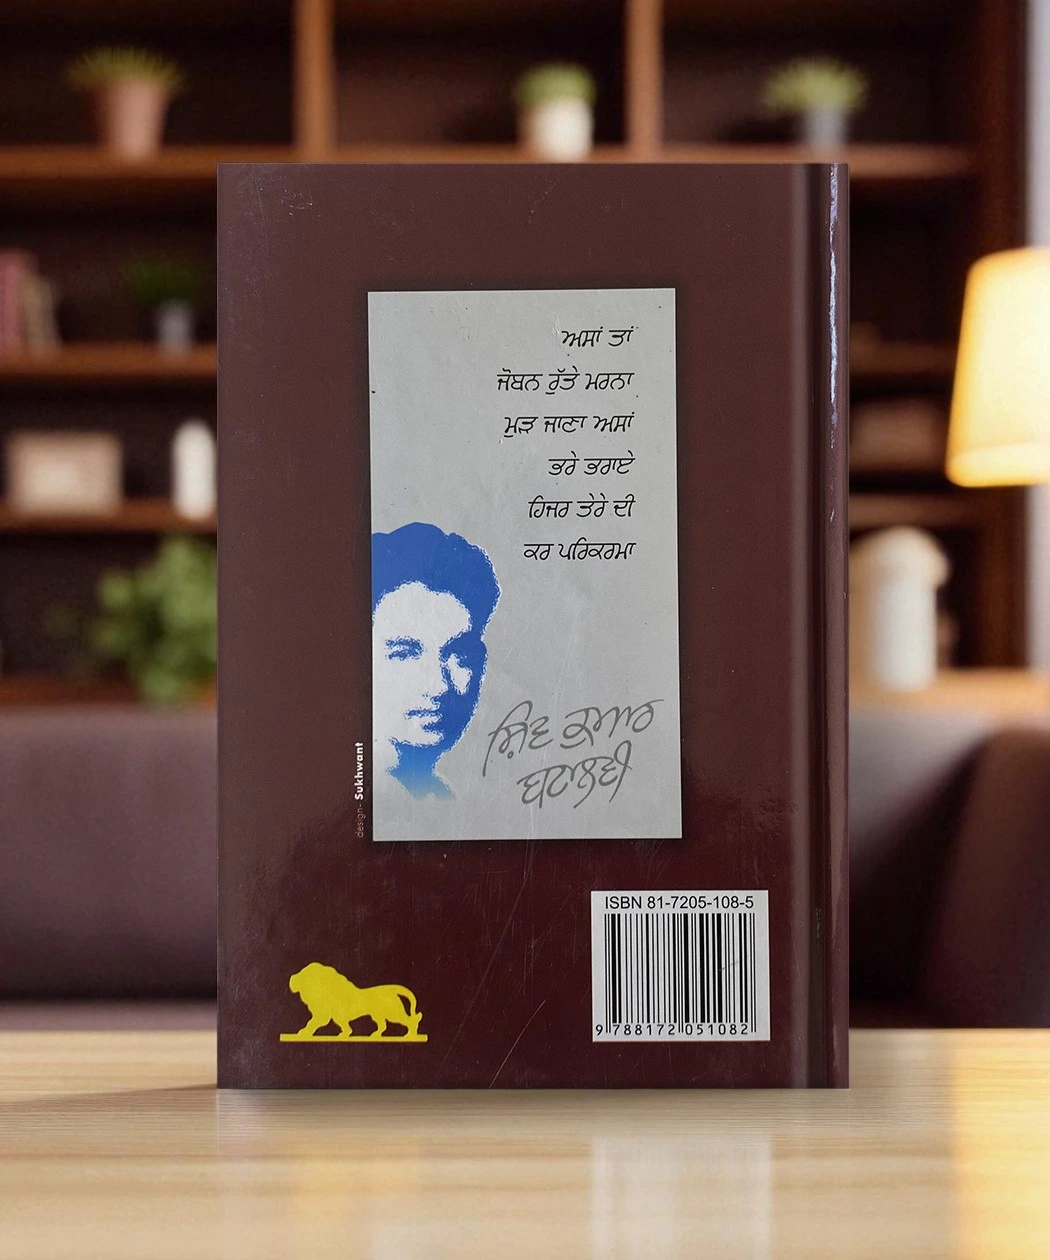 ਅਸਾਂ ਤਾਂ
ਜੋਬਨ ਰੁੱਤੇ ਮਰਨਾ
ਮੁੜ ਜਾਣਾ ਅਸਾਂ
ਭਰੇ ਭਰਾਏ
ਹਿਜਰ ਤੇਰੇ ਦੀ
ਕਰ ਪਰਿਕਰਮਾ
ਸ਼ਿਵ ਕੁਮਾਰ
ਬਟਾਲਵੀ
design- Sukhwant
ISBN 81-7205-108-5
9 788172 051082